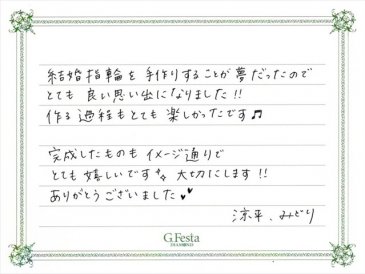 結婚指輪を手作りすることが夢だったので
とても良い思い出になりました!!
作る過程もとても楽しかったです♫
完成したものもイメージ通りで
とても嬉しいです✨大切にします!!
ありがとうございました♥♥
涼平、みどり
G.Festa
DIAMOND